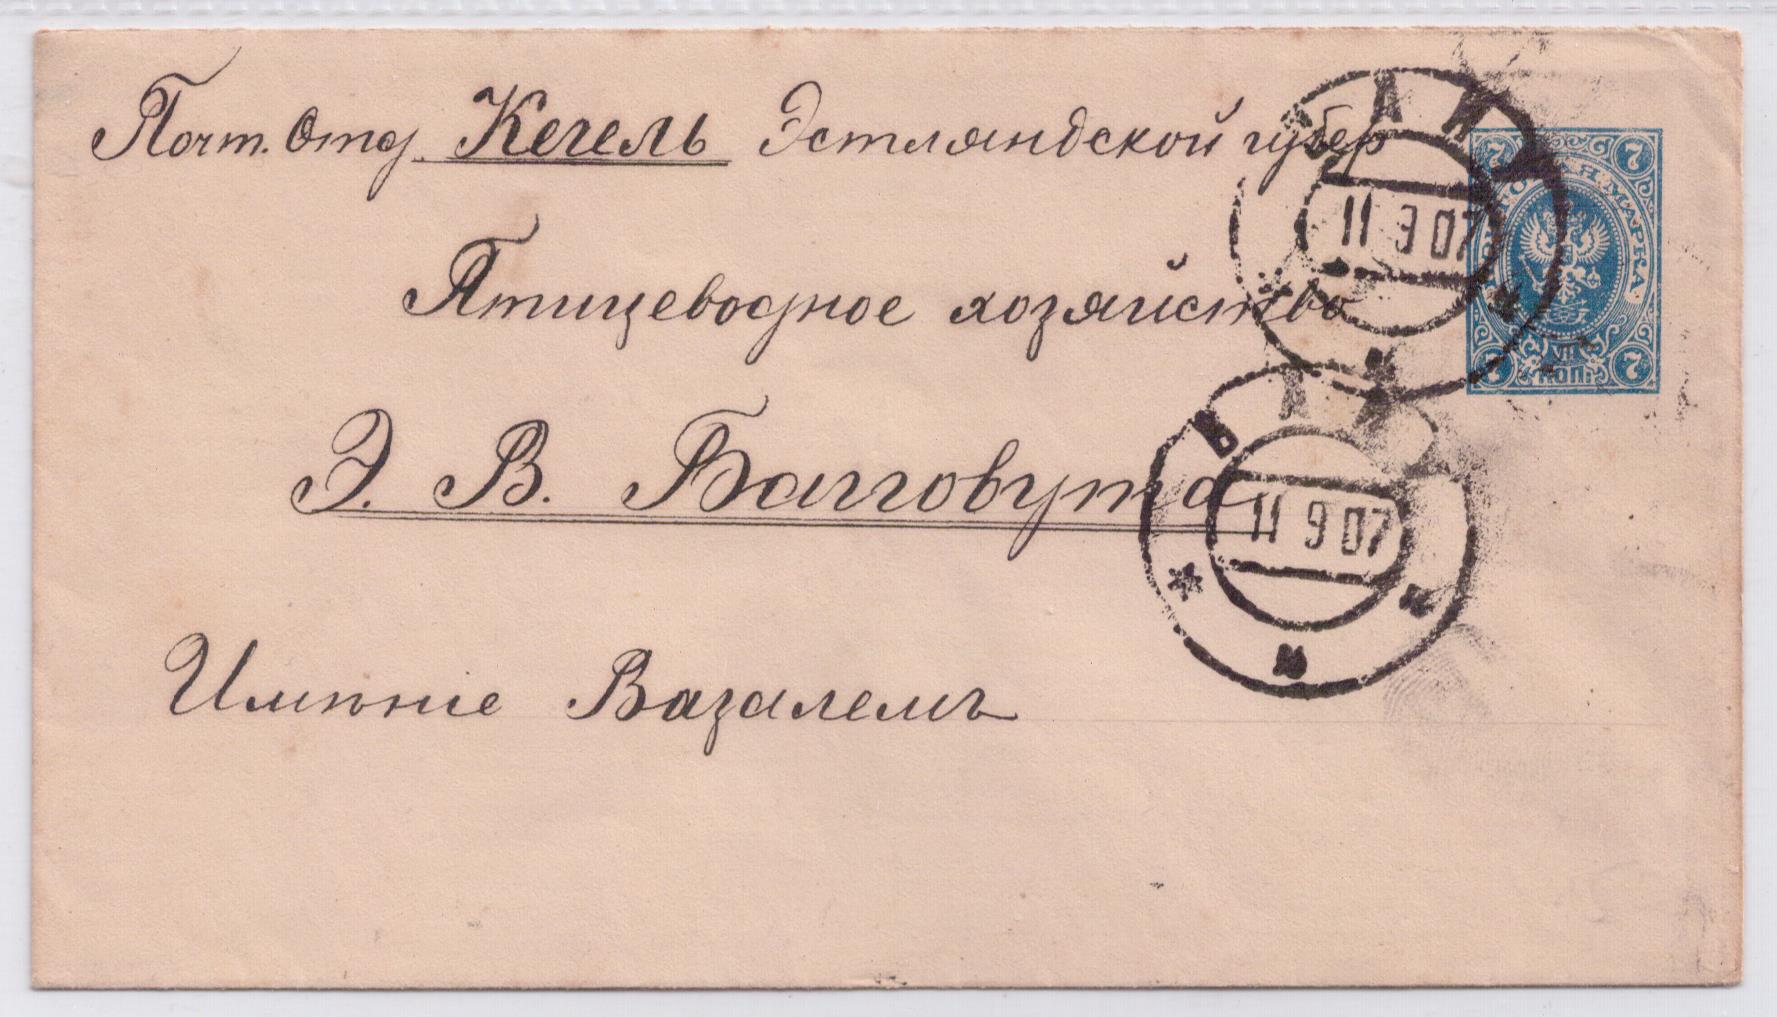 Почт. Отд. Кегель Эстляндской губер
Птицеводное хозяйство
Э. В. Багговута
Имѣніе Вазалемъ
11 9 07
11 9 07
7 7
МАРКА
VII
КОП.
7 7